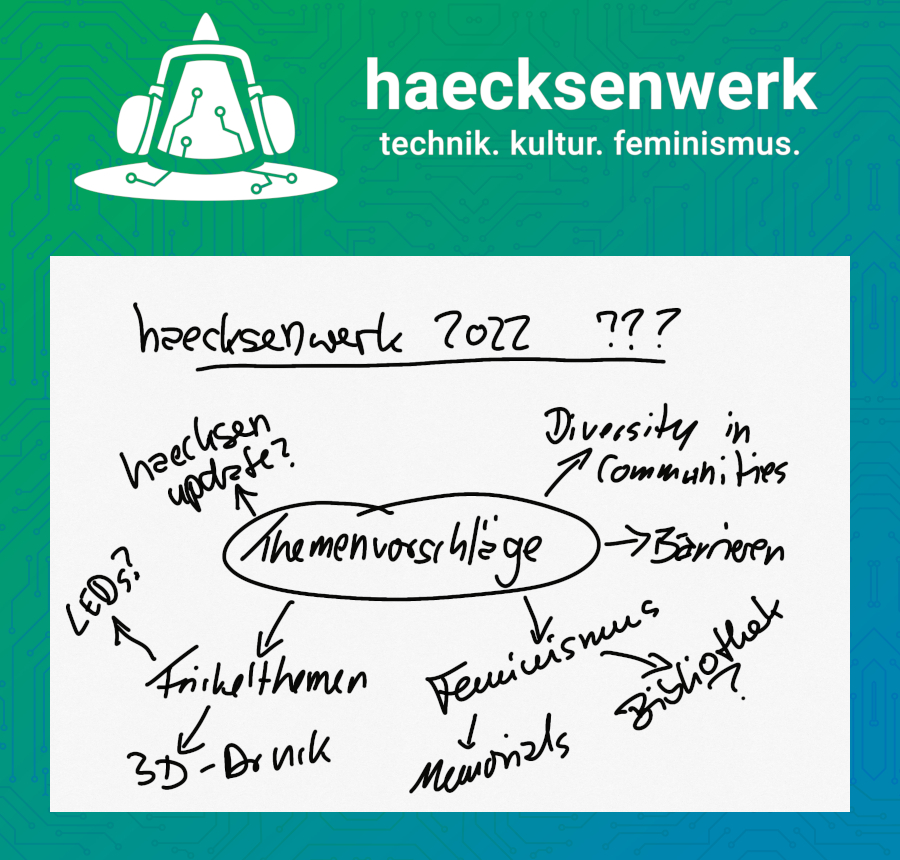 haecksenwerk
technik. kultur. feminismus.
haecksenwerk 2022 ???
haecksen
update?
Diversity in
Communities
Themenvorschläge
Barrieren
LEDs?
Frickelthemen
3D-Druck
Feminismus
Bibliothek
?
Memorials